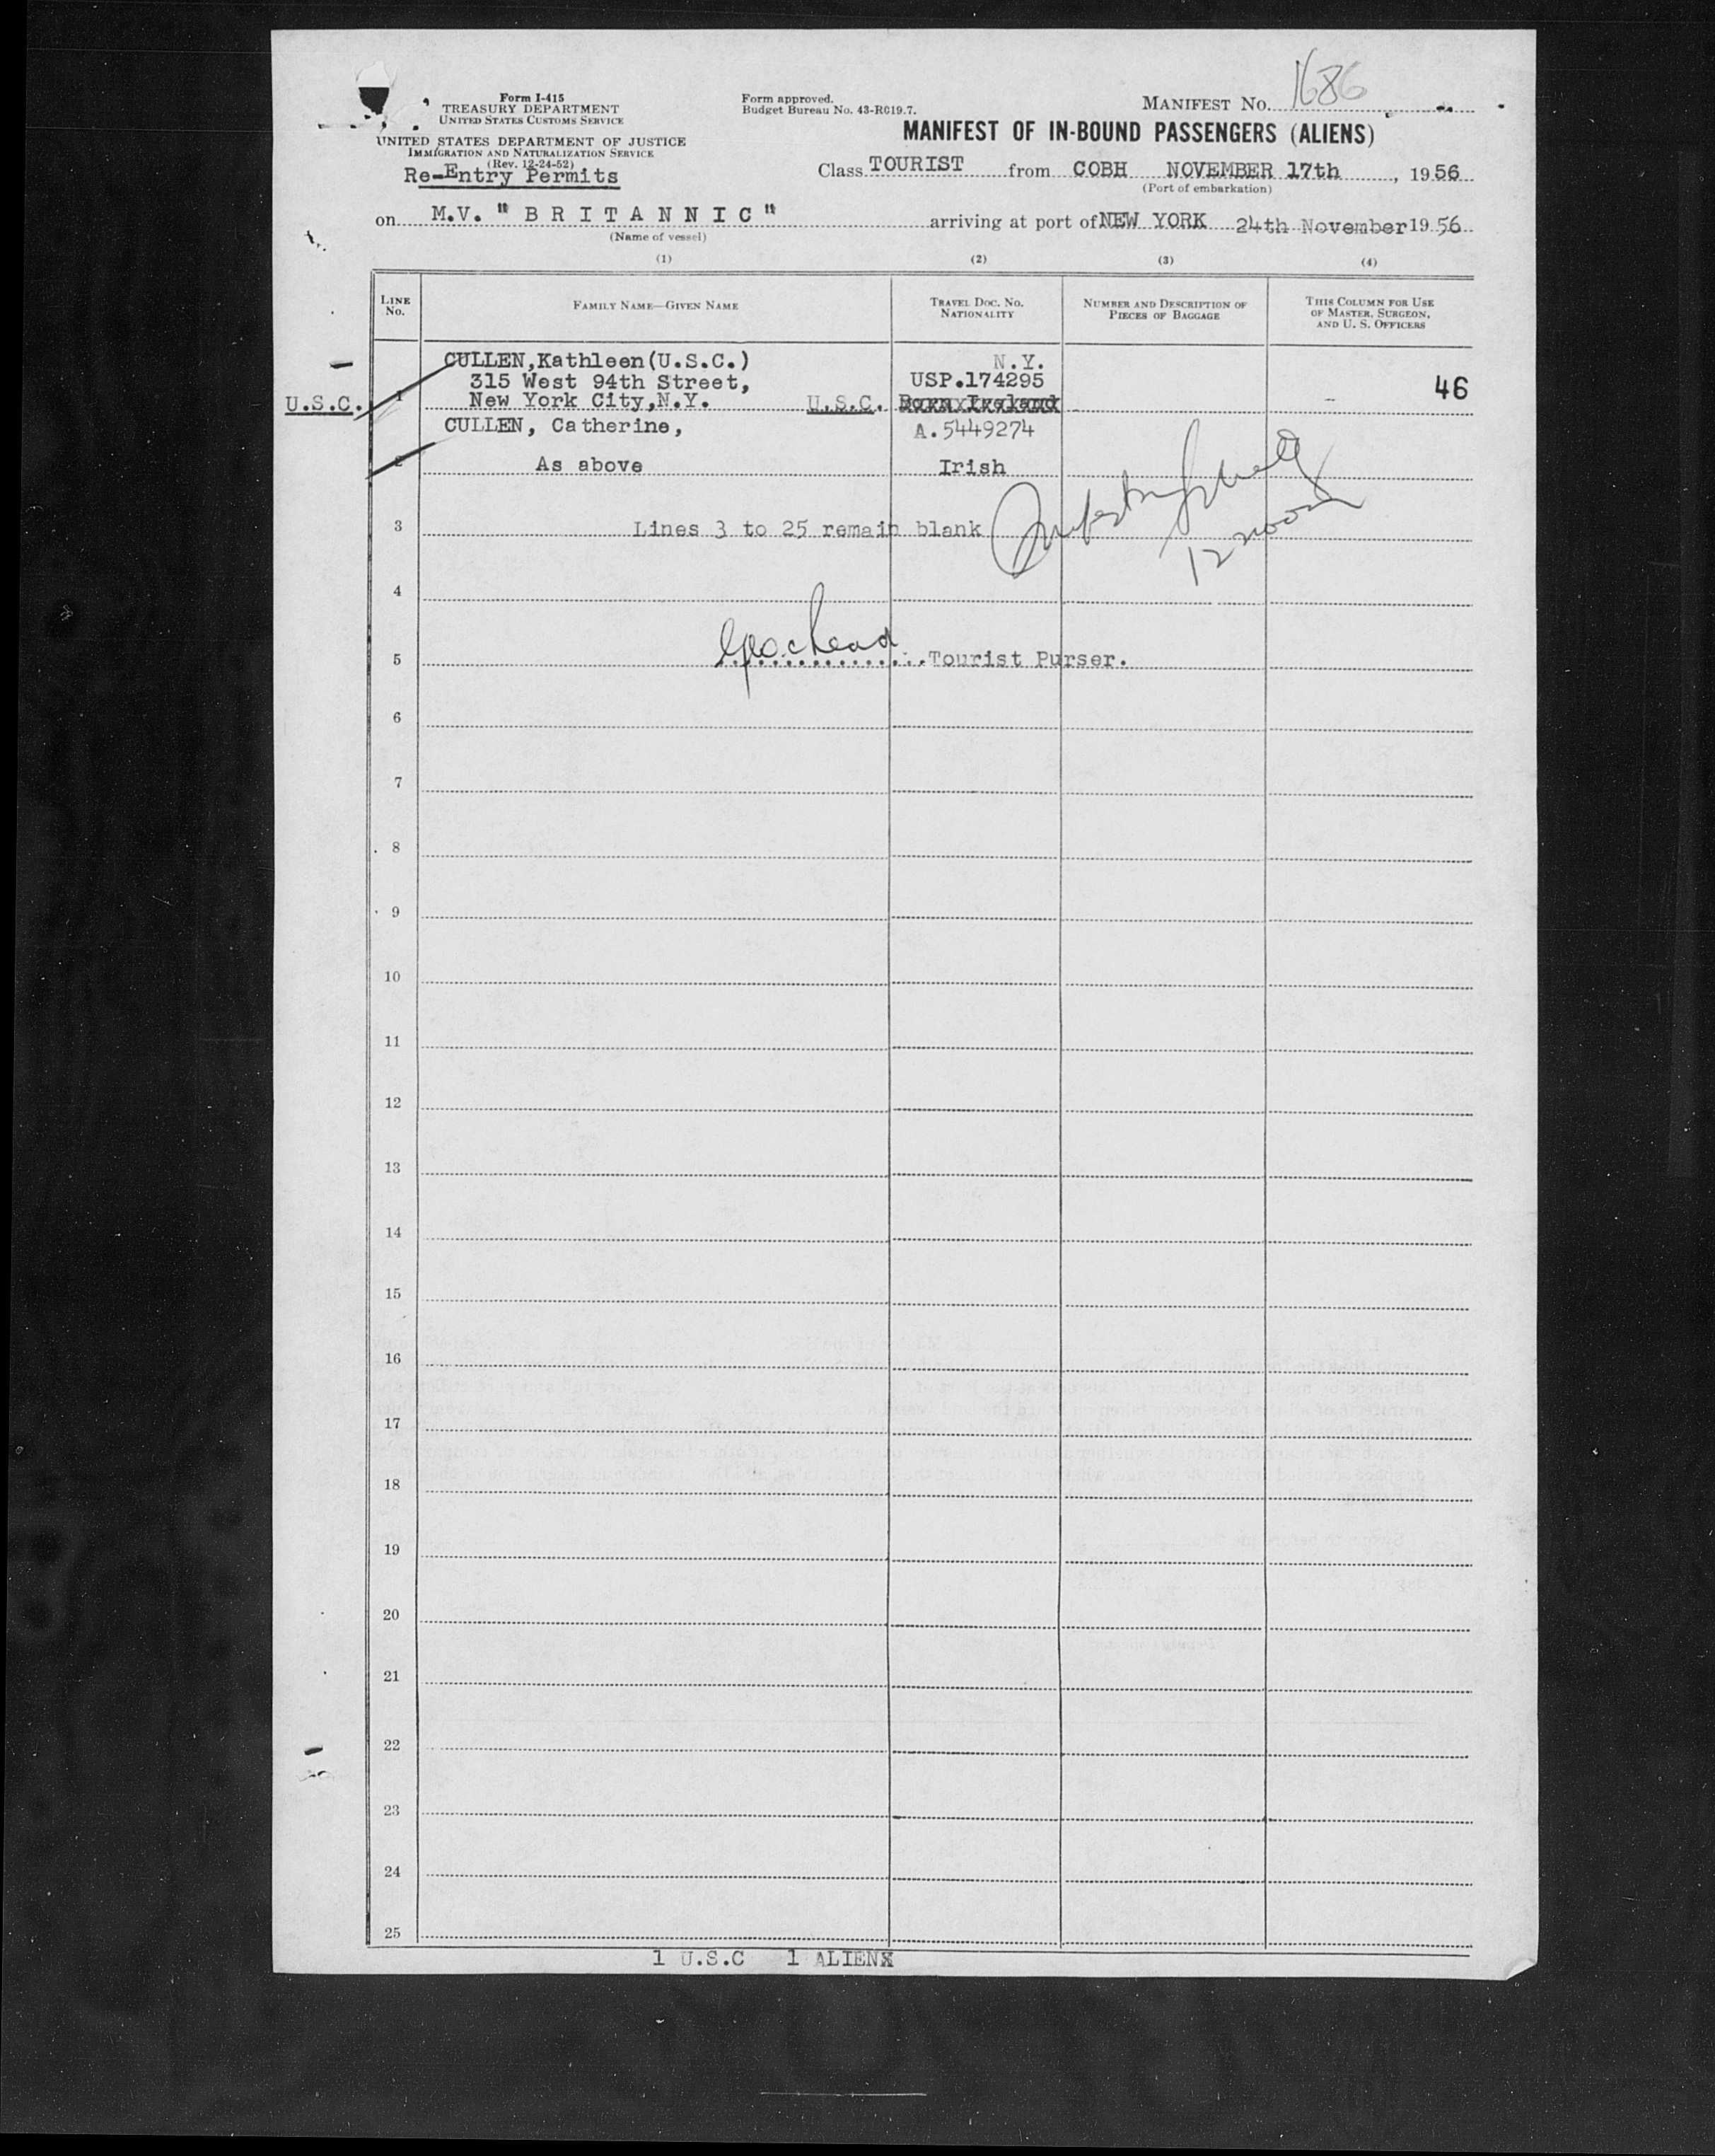 1686
Form I-415
TREASURY DEPARTMENT
UNITED STATES CUSTOMS SERVICE
UNITED STATES DEPARTMENT OF JUSTICE
IMMIGRATION AND NATURALIZATION SERVICE
(Rev. 12-24-52)
Re-Entry Permits
Form approved.
Budget Bureau No. 43-R019.7.
MANIFEST NO.
MANIFEST OF IN-BOUND PASSENGERS (ALIENS)
Class TOURIST from COBH NOVEMBER 17th, 1956
(Port of embarkation)
on M.V. "BRITANNIC" arriving at port of NEW YORK 24th November 1956
(Name of vessel)
(1) (2) (3) (4)
LINE NO.
FAMILY NAME—GIVEN NAME
TRAVEL DOC. NO. NATIONALITY
NUMBER AND DESCRIPTION OF PIECES OF BAGGAGE
THIS COLUMN FOR USE OF MASTER, SURGEON, AND U. S. OFFICERS
CULLEN,Kathleen(U.S.C.) N.Y.
315 West 94th Street, USP.174295
U.S.C. 1 New York City,N.Y. U.S.C. Born Ireland 46
CULLEN, Catherine, A.5449274
2 As above Irish
3 Lines 3 to 25 remain blank
12 noon
4
5 Tourist Purser.
6
7
8
9
10
11
12
13
14
15
16
17
18
19
20
21
22
23
24
25
1 U.S.C 1 ALIEN